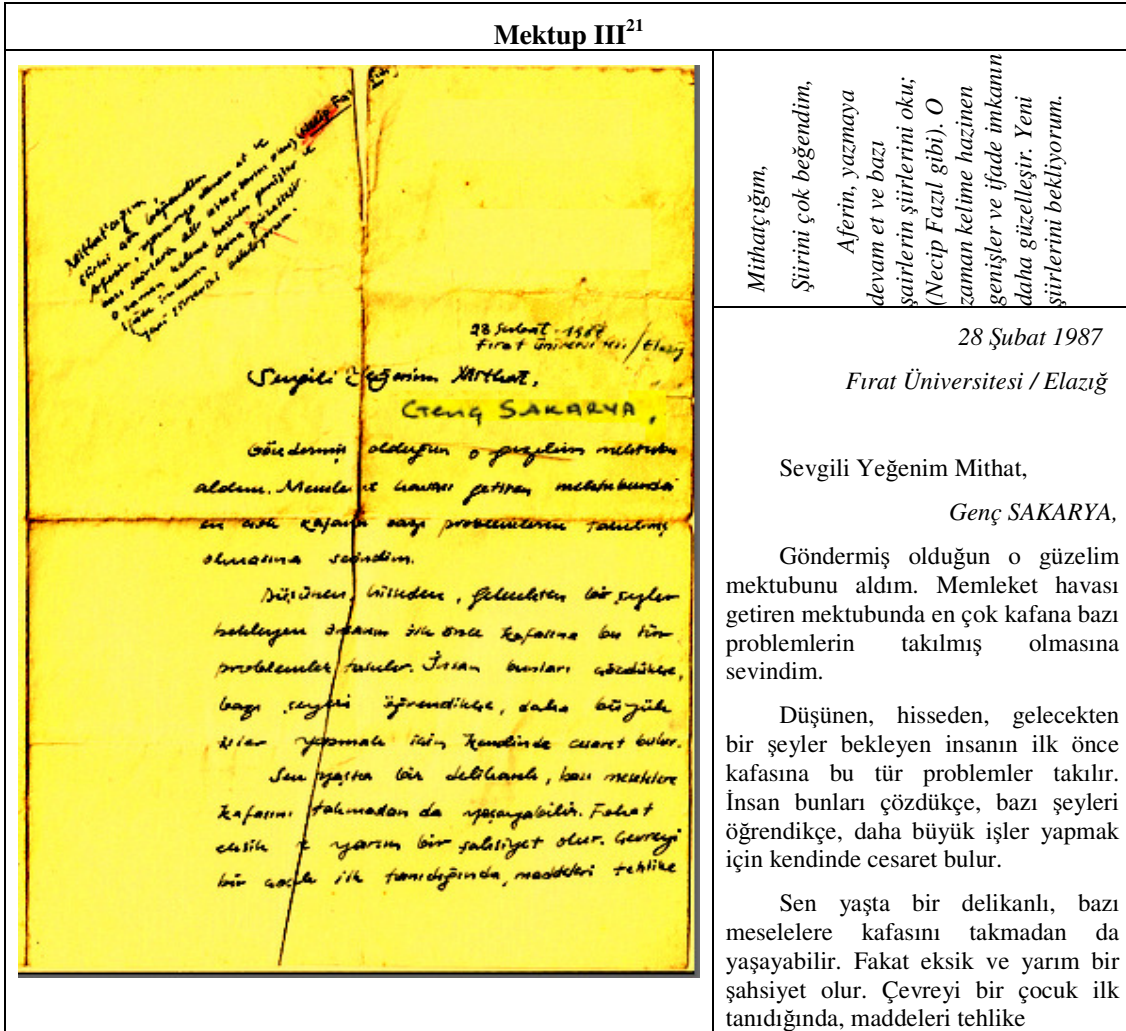 Mektup III²¹
Mithat'cığım,
Şiirini çok beğendim
Aferin, yazmaya devam et ve
bazı şairlerin (Necip Fazıl
O zaman kelime hazinen genişler ve
ifade imkanın daha güzelleşir.
Yeni şiirlerini bekliyorum.
28 Şubat 1987
Fırat Üniversitesi / Elazığ
Sevgili Yeğenim Mithat,
Genç SAKARYA,
Göndermiş olduğun o güzelim mektubu
aldım. Memleket havası getiren mektubunda
en çok kafana bazı problemlerin takılmış
olmasına sevindim.
Düşünen, hisseden, gelecekten bir şeyler
bekleyen insanın ilk önce kafasına bu tür
problemler takılır. İnsan bunları çözdükçe,
bazı şeyleri öğrendikçe, daha büyük
işler yapmak için kendinde cesaret bulur.
Sen yaşta bir delikanlı, bazı meselelere
kafasını takmadan da yaşayabilir. Fakat
eksik ve yarım bir şahsiyet olur. Çevreyi
bir çocuk ilk tanıdığında, maddeleri tehlike
Mithatçığım,
Şiirini çok beğendim,
Aferin, yazmaya
devam et ve bazı
şairlerin şiirlerini oku;
(Necip Fazıl gibi). O
zaman kelime hazinen
genişler ve ifade imkanın
daha güzelleşir. Yeni
şiirlerini bekliyorum.
28 Şubat 1987
Fırat Üniversitesi / Elazığ
Sevgili Yeğenim Mithat,
Genç SAKARYA,
Göndermiş olduğun o güzelim
mektubunu aldım. Memleket havası
getiren mektubunda en çok kafana bazı
problemlerin takılmış olmasına
sevindim.
Düşünen, hisseden, gelecekten
bir şeyler bekleyen insanın ilk önce
kafasına bu tür problemler takılır.
İnsan bunları çözdükçe, bazı şeyleri
öğrendikçe, daha büyük işler yapmak
için kendinde cesaret bulur.
Sen yaşta bir delikanlı, bazı
meselelere kafasını takmadan da
yaşayabilir. Fakat eksik ve yarım bir
şahsiyet olur. Çevreyi bir çocuk ilk
tanıdığında, maddeleri tehlike